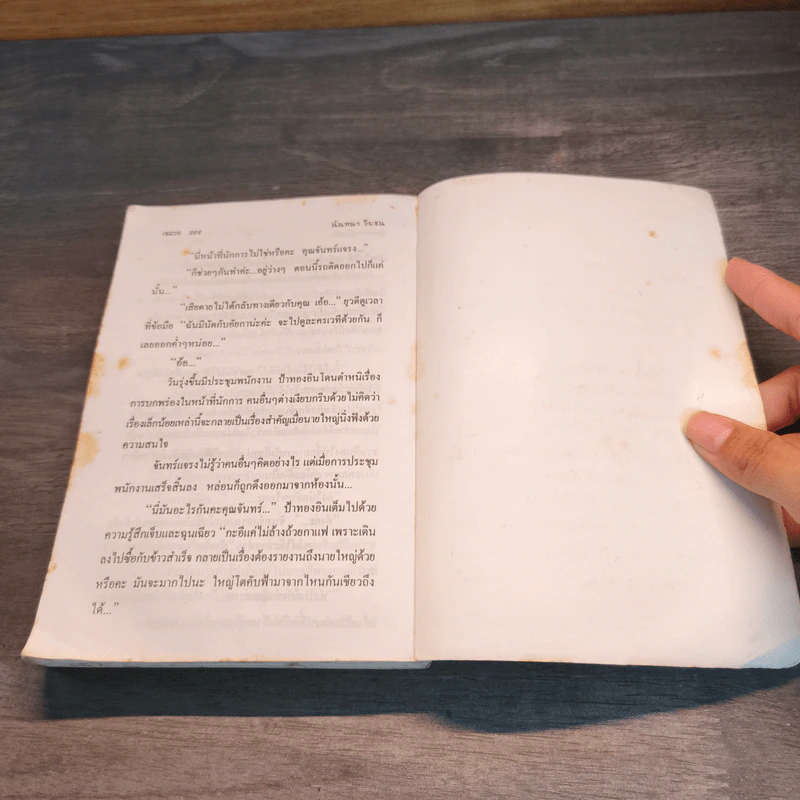 นันทนา วีระชน
"นี่หน้าที่นักการไม่ใช่หรือคะ คุณจันทร์แจรง..."
"ก็ช่วยๆกันทำค่ะ...อยู่ว่างๆ ตอนนี้รถติดออกไปก็แค่
นั้น..."
"เสียดายไม่ได้กลับทางเดียวกับคุณ เอ้อ..." ยุวดีดูเวลา
ที่ข้อมือ "ฉันมีนัดกับอัยกาน่ะค่ะ จะไปดูละครเวทีด้วยกัน ก็
เลยออกค่ำๆหน่อย..."
"อ้อ..."
วันรุ่งขึ้นมีประชุมพนักงาน ป้าทองอินโดนตำหนิเรื่อง
การบกพร่องในหน้าที่นักการ คนอื่นๆต่างเงียบกริบด้วยไม่คิดว่า
เรื่องเล็กน้อยเหล่านี้จะกลายเป็นเรื่องสำคัญเมื่อนายใหญ่นิ่งฟังด้วย
ความสนใจ
จันทร์แจรงไม่รู้ว่าคนอื่นๆคิดอย่างไร แต่เมื่อการประชุม
พนักงานเสร็จสิ้นลง หล่อนก็ถูกดึงออกมาจากห้องนั้น...
"นี่มันอะไรกันคะคุณจันทร์..." ป้าทองอินเต็มไปด้วย
ความรู้สึกเจ็บและฉุนเฉียว "กะอีแค่ไม่ล้างถ้วยกาแฟ เพราะเดิน
ลงไปซื้อกับข้าวสำเร็จ กลายเป็นเรื่องต้องรายงานถึงนายใหญ่ด้วย
หรือคะ มันจะมากไปนะ ใหญ่โตคับฟ้ามาจากไหนกันเชียวถึง
ได้..."